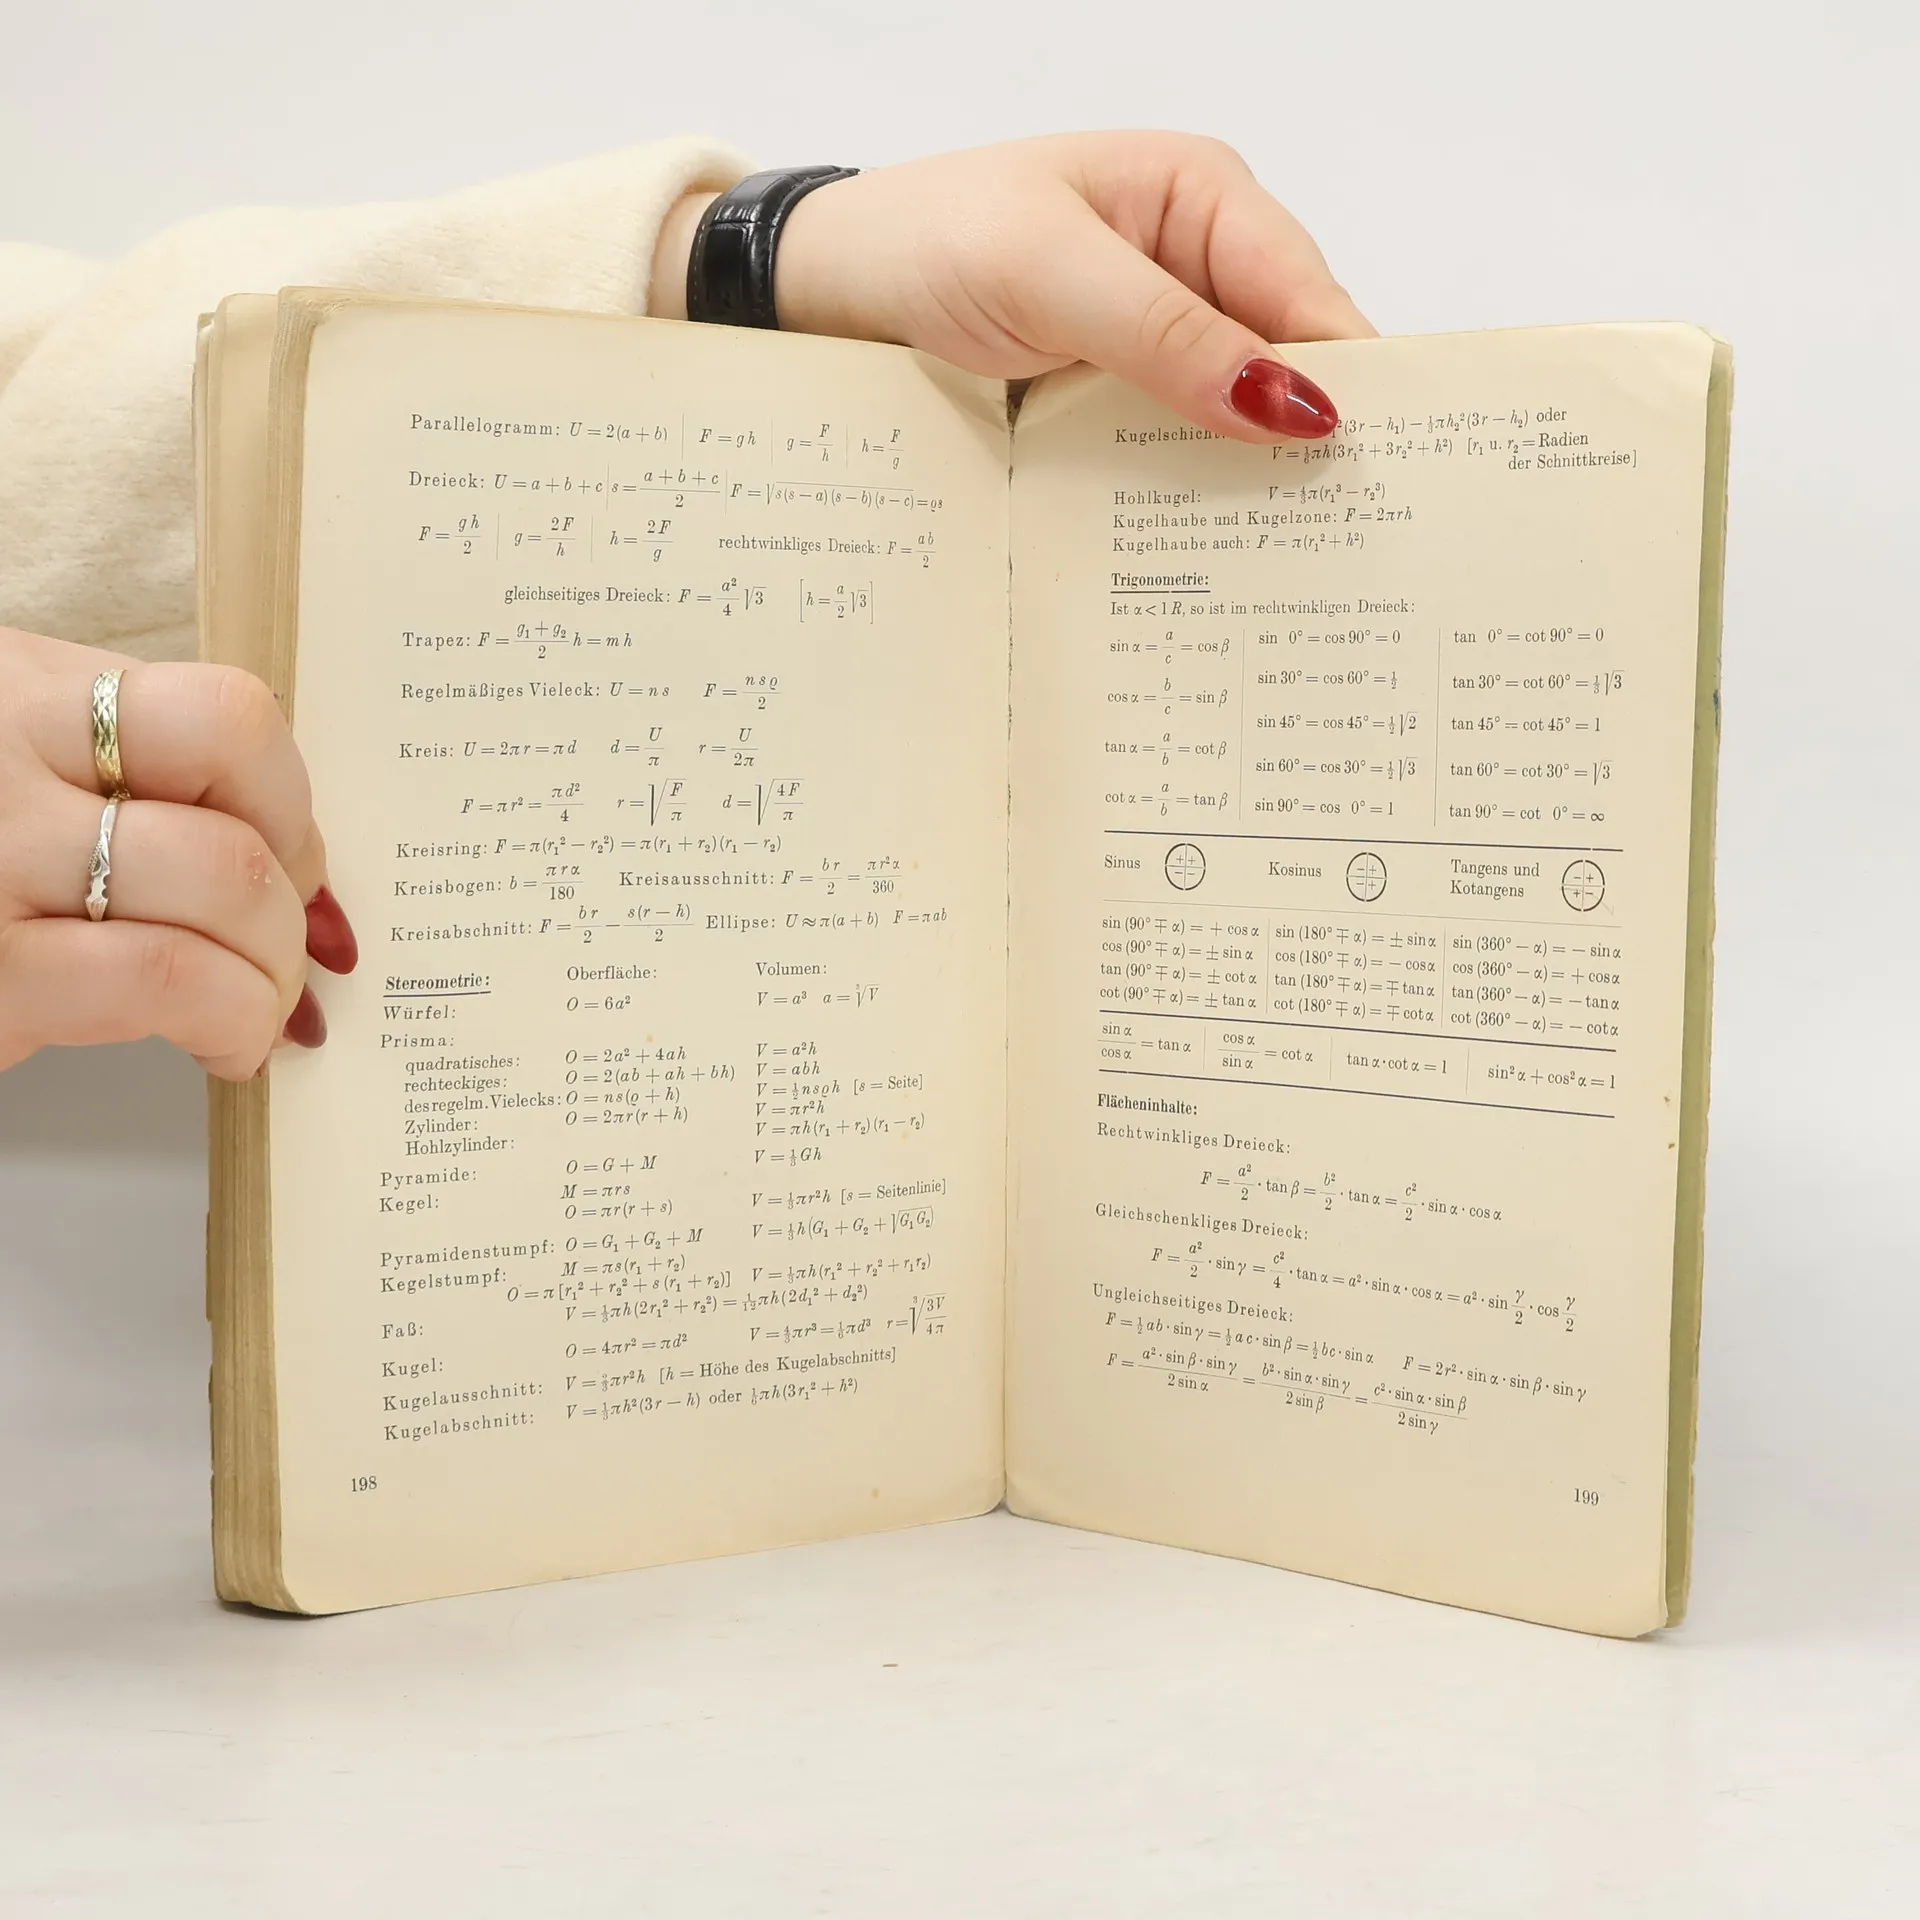 Parallelogramm: U = 2(a + b) | F = g h | g = F/h | h = F/g
Dreieck: U = a + b + c | s = (a + b + c)/2 | F = √(s(s − a)(s − b)(s − c)) = ϱs
F = g h/2 | g = 2F/h | h = 2F/g rechtwinkliges Dreieck: F = a b/2
gleichseitiges Dreieck: F = a²/4 √3 [h = a/2 √3]
Trapez: F = (g₁ + g₂)/2 h = m h
Regelmäßiges Vieleck: U = n s F = n s ϱ/2
Kreis: U = 2π r = π d d = U/π r = U/2π
F = π r² = π d²/4 r = √(F/π) d = √(4F/π)
Kreisring: F = π(r₁² − r₂²) = π(r₁ + r₂)(r₁ − r₂)
Kreisbogen: b = π r α/180 Kreisausschnitt: F = b r/2 = π r² α/360
Kreisabschnitt: F = b r/2 − s(r − h)/2 Ellipse: U ≈ π(a + b) F = π a b
Stereometrie: Oberfläche: Volumen:
Würfel: O = 6a² V = a³ a = ³√V
Prisma:
quadratisches: O = 2a² + 4ah V = a²h
rechteckiges: O = 2(ab + ah + bh) V = abh
des regelm. Vielecks: O = ns(ϱ + h) V = ½nsϱh [s = Seite]
Zylinder: O = 2πr(r + h) V = πr²h
Hohlzylinder: V = πh(r₁ + r₂)(r₁ − r₂)
Pyramide: O = G + M V = ⅓Gh
Kegel: M = πrs
O = πr(r + s) V = ⅓πr²h [s = Seitenlinie]
Pyramidenstumpf: O = G₁ + G₂ + M V = ⅓h(G₁ + G₂ + √(G₁G₂))
Kegelstumpf: M = πs(r₁ + r₂)
O = π[r₁² + r₂² + s(r₁ + r₂)] V = ⅓πh(r₁² + r₂² + r₁r₂)
Faß: V = ⅓πh(2r₁² + r₂²) = 1/12 πh(2d₁² + d₂²)
Kugel: O = 4πr² = πd² V = 4/3 πr³ = ⅙πd³ r = ³√(3V/4π)
Kugelausschnitt: V = ⅔πr²h [h = Höhe des Kugelabschnitts]
Kugelabschnitt: V = ⅓πh²(3r − h) oder ⅙πh(3r₁² + h²)
198
Kugelschicht: ²(3r − h₁) − ⅓πh₂²(3r − h₂) oder
V = ⅙πh(3r₁² + 3r₂² + h²) [r₁ u. r₂ = Radien
der Schnittkreise]
Hohlkugel: V = 4/3 π(r₁³ − r₂³)
Kugelhaube und Kugelzone: F = 2πrh
Kugelhaube auch: F = π(r₁² + h²)
Trigonometrie:
Ist α < 1 R, so ist im rechtwinkligen Dreieck:
sin α = a/c = cos β | sin 0° = cos 90° = 0 | tan 0° = cot 90° = 0
cos α = b/c = sin β | sin 30° = cos 60° = ½ | tan 30° = cot 60° = ⅓√3
tan α = a/b = cot β | sin 45° = cos 45° = ½√2 | tan 45° = cot 45° = 1
sin 60° = cos 30° = ½√3 | tan 60° = cot 30° = √3
cot α = a/b = tan β | sin 90° = cos 0° = 1 | tan 90° = cot 0° = ∞
Sinus + + − − Kosinus − + − + Tangens und − + + −
Kotangens
sin (90° ∓ α) = + cos α | sin (180° ∓ α) = ± sin α | sin (360° − α) = − sin α
cos (90° ∓ α) = ± sin α | cos (180° ∓ α) = − cos α | cos (360° − α) = + cos α
tan (90° ∓ α) = ± cot α | tan (180° ∓ α) = ∓ tan α | tan (360° − α) = − tan α
cot (90° ∓ α) = ± tan α | cot (180° ∓ α) = ∓ cot α | cot (360° − α) = − cot α
sin α/cos α = tan α | cos α/sin α = cot α | tan α · cot α = 1 | sin² α + cos² α = 1
Flächeninhalte:
Rechtwinkliges Dreieck:
F = a²/2 · tan β = b²/2 · tan α = c²/2 · sin α · cos α
Gleichschenkliges Dreieck:
F = a²/2 · sin γ = c²/4 · tan α = a² · sin α · cos α = a² · sin γ/2 · cos γ/2
Ungleichseitiges Dreieck:
F = ½ ab · sin γ = ½ ac · sin β = ½ bc · sin α F = 2r² · sin α · sin β · sin γ
F = a² · sin β · sin γ/2 sin α = b² · sin α · sin γ/2 sin β = c² · sin α · sin β/2 sin γ
199